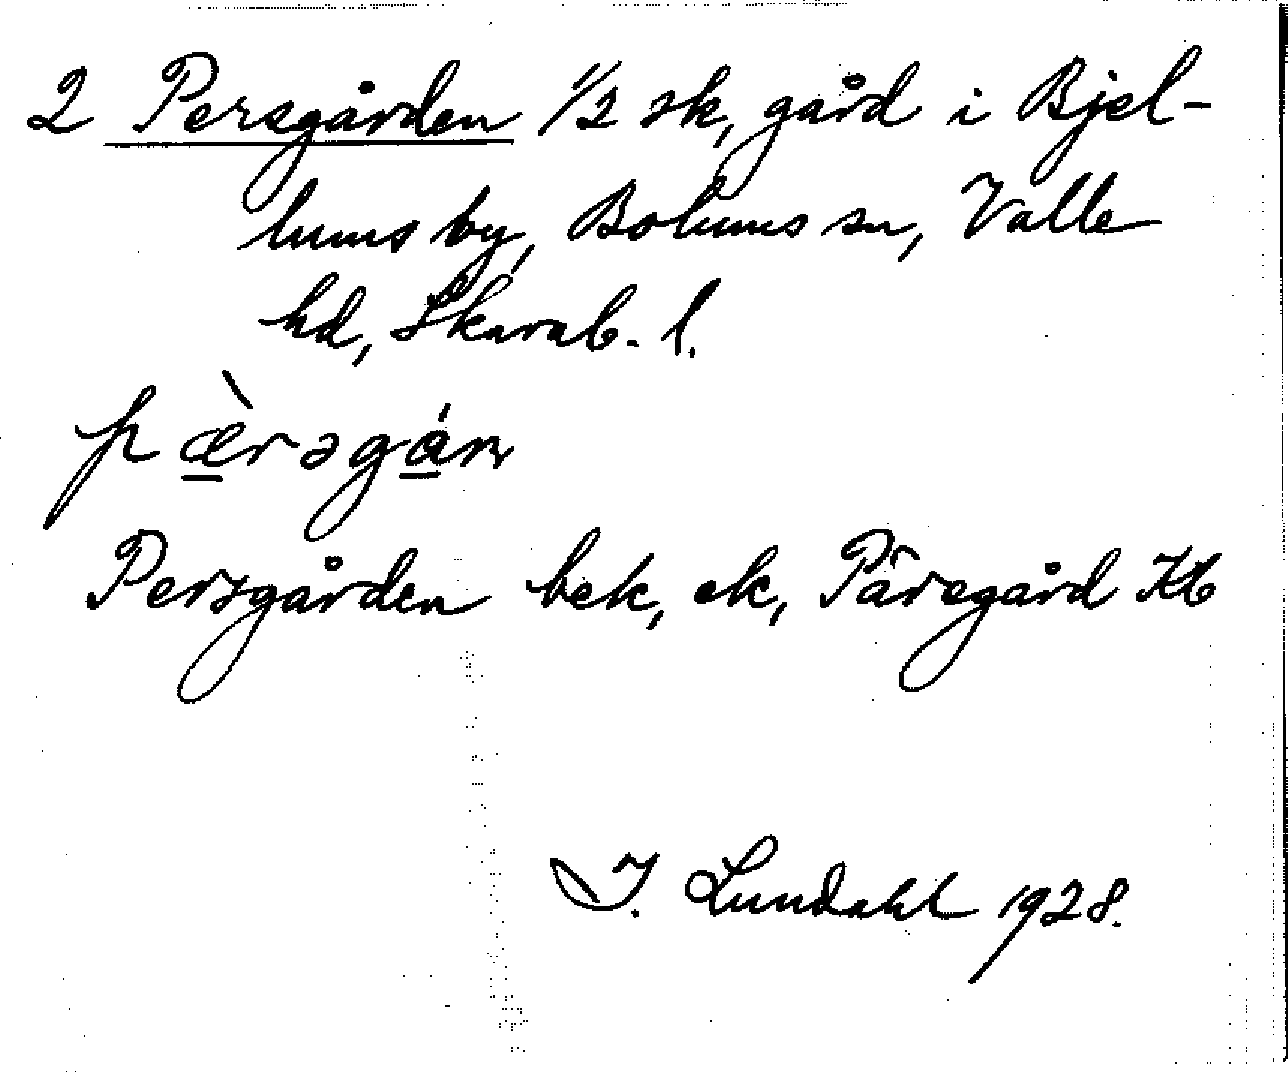 2 Persgården 1/2 sk, gård i Bjel-
lums by, Bolums sn, Valle
hd, Skarab. l.
pæ̀rsgán
Persgården bek, ek, Päregård Kb
I. Lundahl 1928.